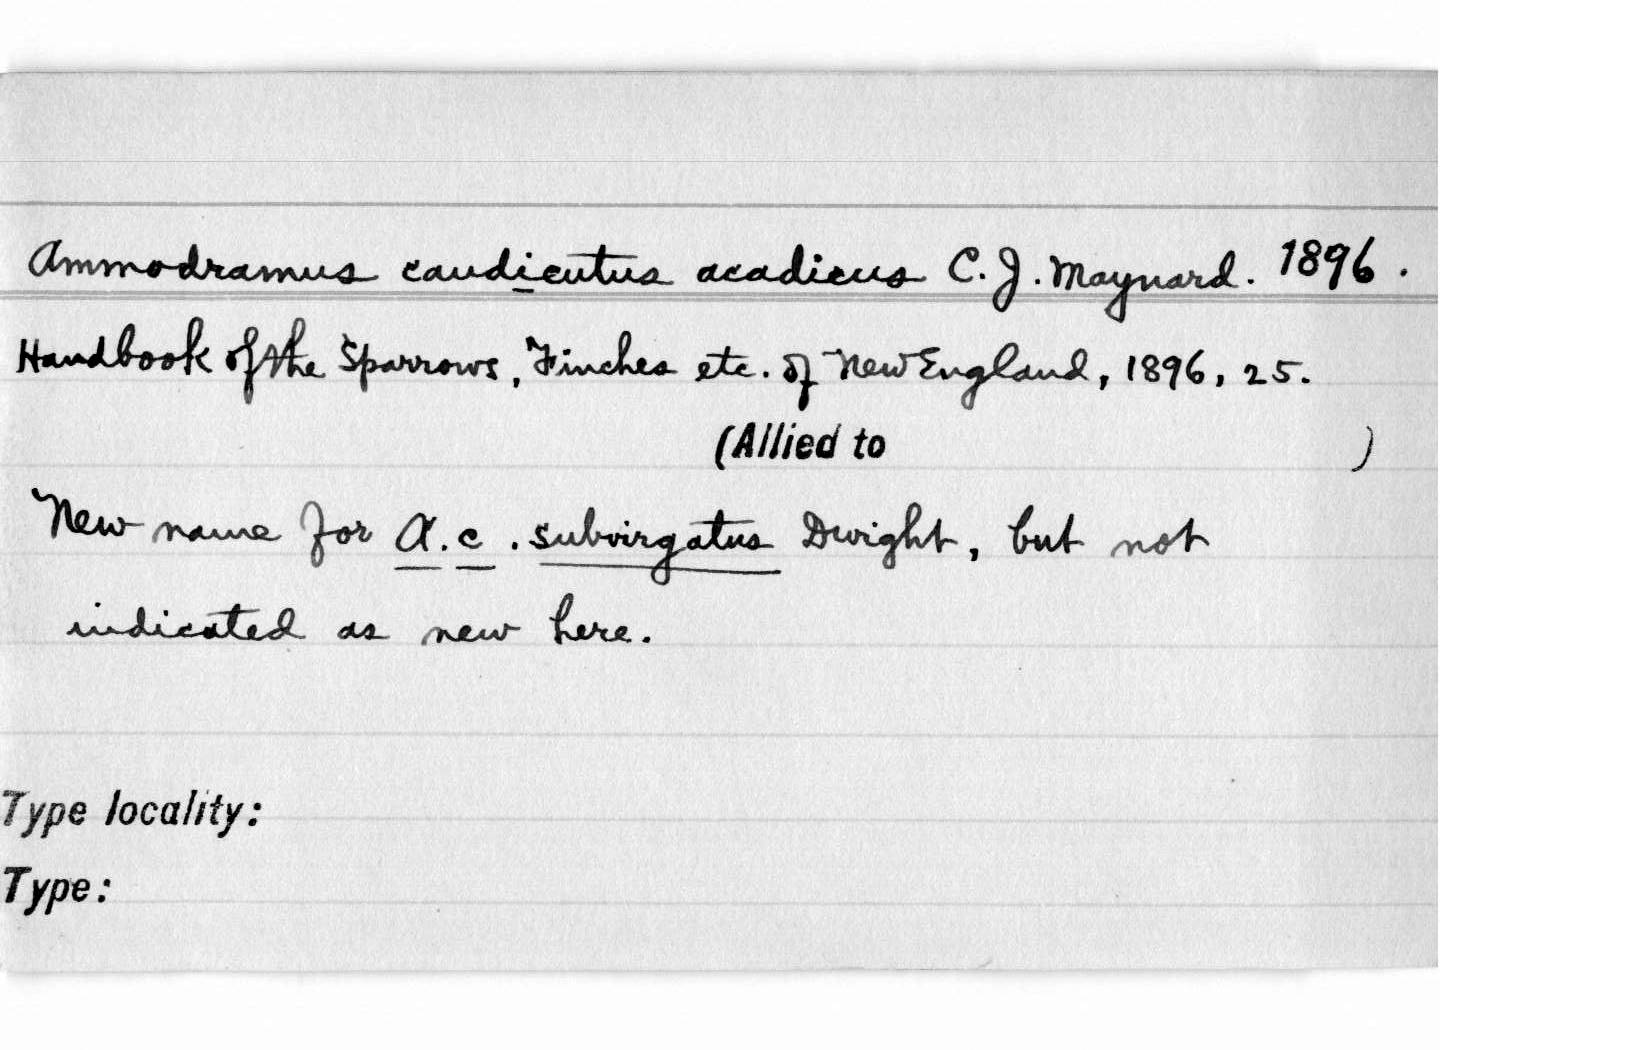 Ammodramus caudicutus acadicus C. J. Maynard. 1896.
Handbook of the Sparrows, Finches etc. of New England, 1896, 25.
(Allied to )
New name for A. c. subvirgatus Dwight, but not
indicated as new here.
Type locality:
Type: